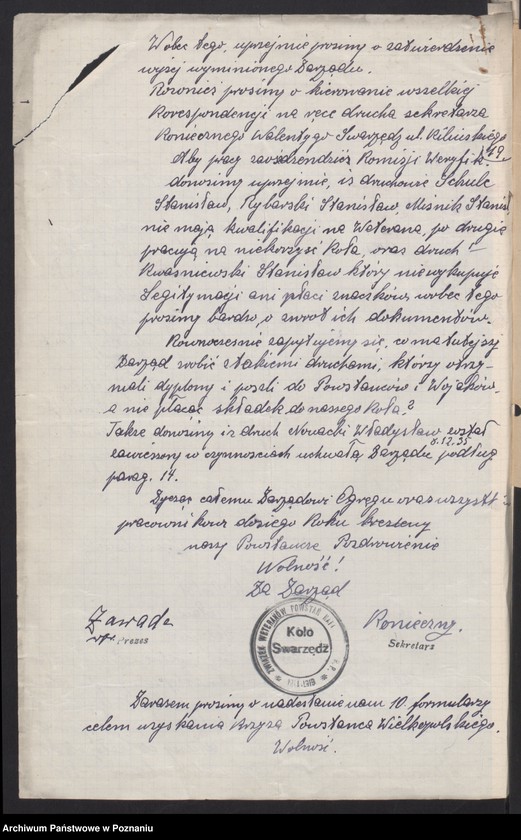 Wobec tego, uprzejmie prosimy o zatwierdzenie
wyżej wyminionego Zarządu.
Rowonież prosimy o kierowanie wszelkiej
Korespondencji na ręce drucha sekretarza
Koniecznego Walentygo Swarzędz ul. Kilinskiego
49
Aby pracy Komisji Weryfik
donosimy uprzejmie, iż druchowie Schulc
Stanisław, Rybarski Stanisław, Misnik Stanis
nie mają kwalifikacji na Waterana, po drugie
pracują na niekorzyść Koła, oraz druch
Kwaśniewski Stanisław który niewykupuje
Legitymacji ani płaci znaczków, wobec tego
prosimy bardzo, o zwrot ich dokumentów.
Rownoczesnie zapytujemy się, co ma tutejszy
Zarząd zrobić z takiemi druchami, którzy otrzy-
mali dyplomy i poszli do Powstanców i Wojaków,
a nie płacąc składek do naszego Koła?
Także donosimy iż druch Nowacki Władysław został
zawieszony w czynnosciach uchwałą Zarządu 8.12.35 podług
parag. 14.
Życząc całemu Zarządowi Okręgu oraz wszyst
pracownikow dosiego Roku kreslemy
naszy Powstańcze Pozdrowienie
Wolność!
Za Zarząd
Zawada
Konieczny.
Prezes
Sekretarz
ZWIĄZEK WETERANÓW POWSTAŃ NAR. R.P.
Koło
Swarzędz
Zarazem prosimy o nadesłanie nam 10. formularzy
celem uzyskania Krzyża Powstańca Wielkopolskiego.
Wolność.
Archiwum Państwowe w Poznaniu